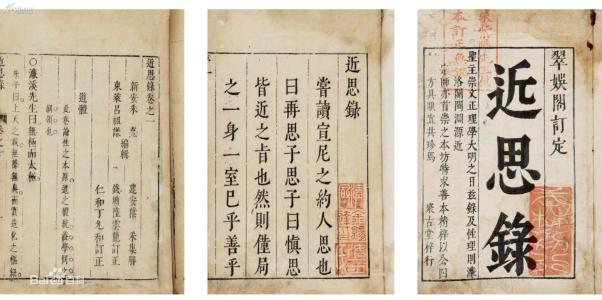 翠娛閣訂定
近思錄
聖主崇文正理學大明之日茲錄及性理則濂
洛關閩淵源近
亦首崇之本坊特求善本梓以公四
方具眼宜共珍焉
聚古堂梓行
近思錄
嘗讀宣尼之約人思也
曰再思子思子曰慎思
皆近之旨也然則僅局
之一身一室已乎善乎
近思錄卷之一
新安朱熹
東萊呂祖謙
編輯
建安葉采集解
錢塘陸雲龍訂正
仁和丁允和訂正
道體
此卷論性之本原道之體統蓋學問之
綱領也
○濂溪先生曰無極而太極
朱子曰上天之載無聲無臭而實造化之樞紐
Baidu百科